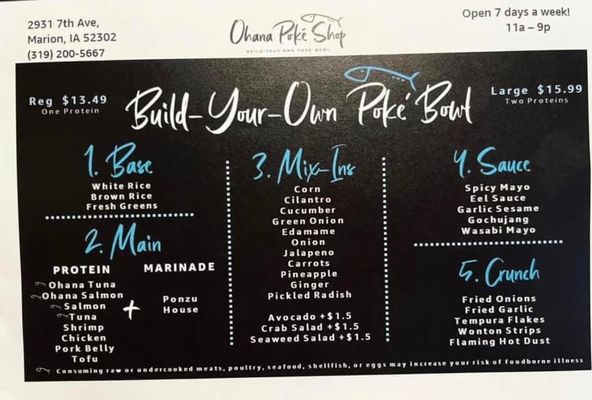 2931 7th Ave,
Marion, IA 52302
(319) 200-5667
Ohana Poké Shop
BUILD-YOUR-OWN POKÉ BOWL
Open 7 days a week!
11a – 9p
Reg $13.49
One Protein
Build-Your-Own Poké Bowl
Large $15.99
Two Proteins
1. Base
White Rice
Brown Rice
Fresh Greens
2. Main
PROTEIN
Ohana Tuna
Ohana Salmon
Salmon
Tuna
Shrimp
Chicken
Pork Belly
Tofu
+
MARINADE
Ponzu
House
3. Mix-Ins
Corn
Cilantro
Cucumber
Green Onion
Edamame
Onion
Jalapeno
Carrots
Pineapple
Ginger
Pickled Radish
Avocado +$1.5
Crab Salad +$1.5
Seaweed Salad +$1.5
4. Sauce
Spicy Mayo
Eel Sauce
Garlic Sesame
Gochujang
Wasabi Mayo
5. Crunch
Fried Onions
Fried Garlic
Tempura Flakes
Wonton Strips
Flaming Hot Dust
Consuming raw or undercooked meats, poultry, seafood, shellfish, or eggs may increase your risk of foodborne illness